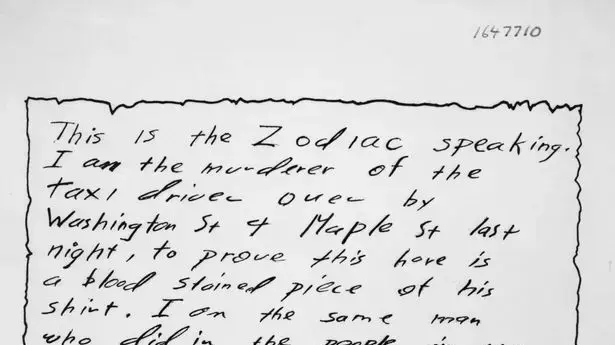 1647710
This is the Zodiac speaking.
I am the murderer of the
taxi driver over by
Washington St + Maple St last
night, to prove this here is
a blood stained piece of his
shirt. I am the same man
who did in the people